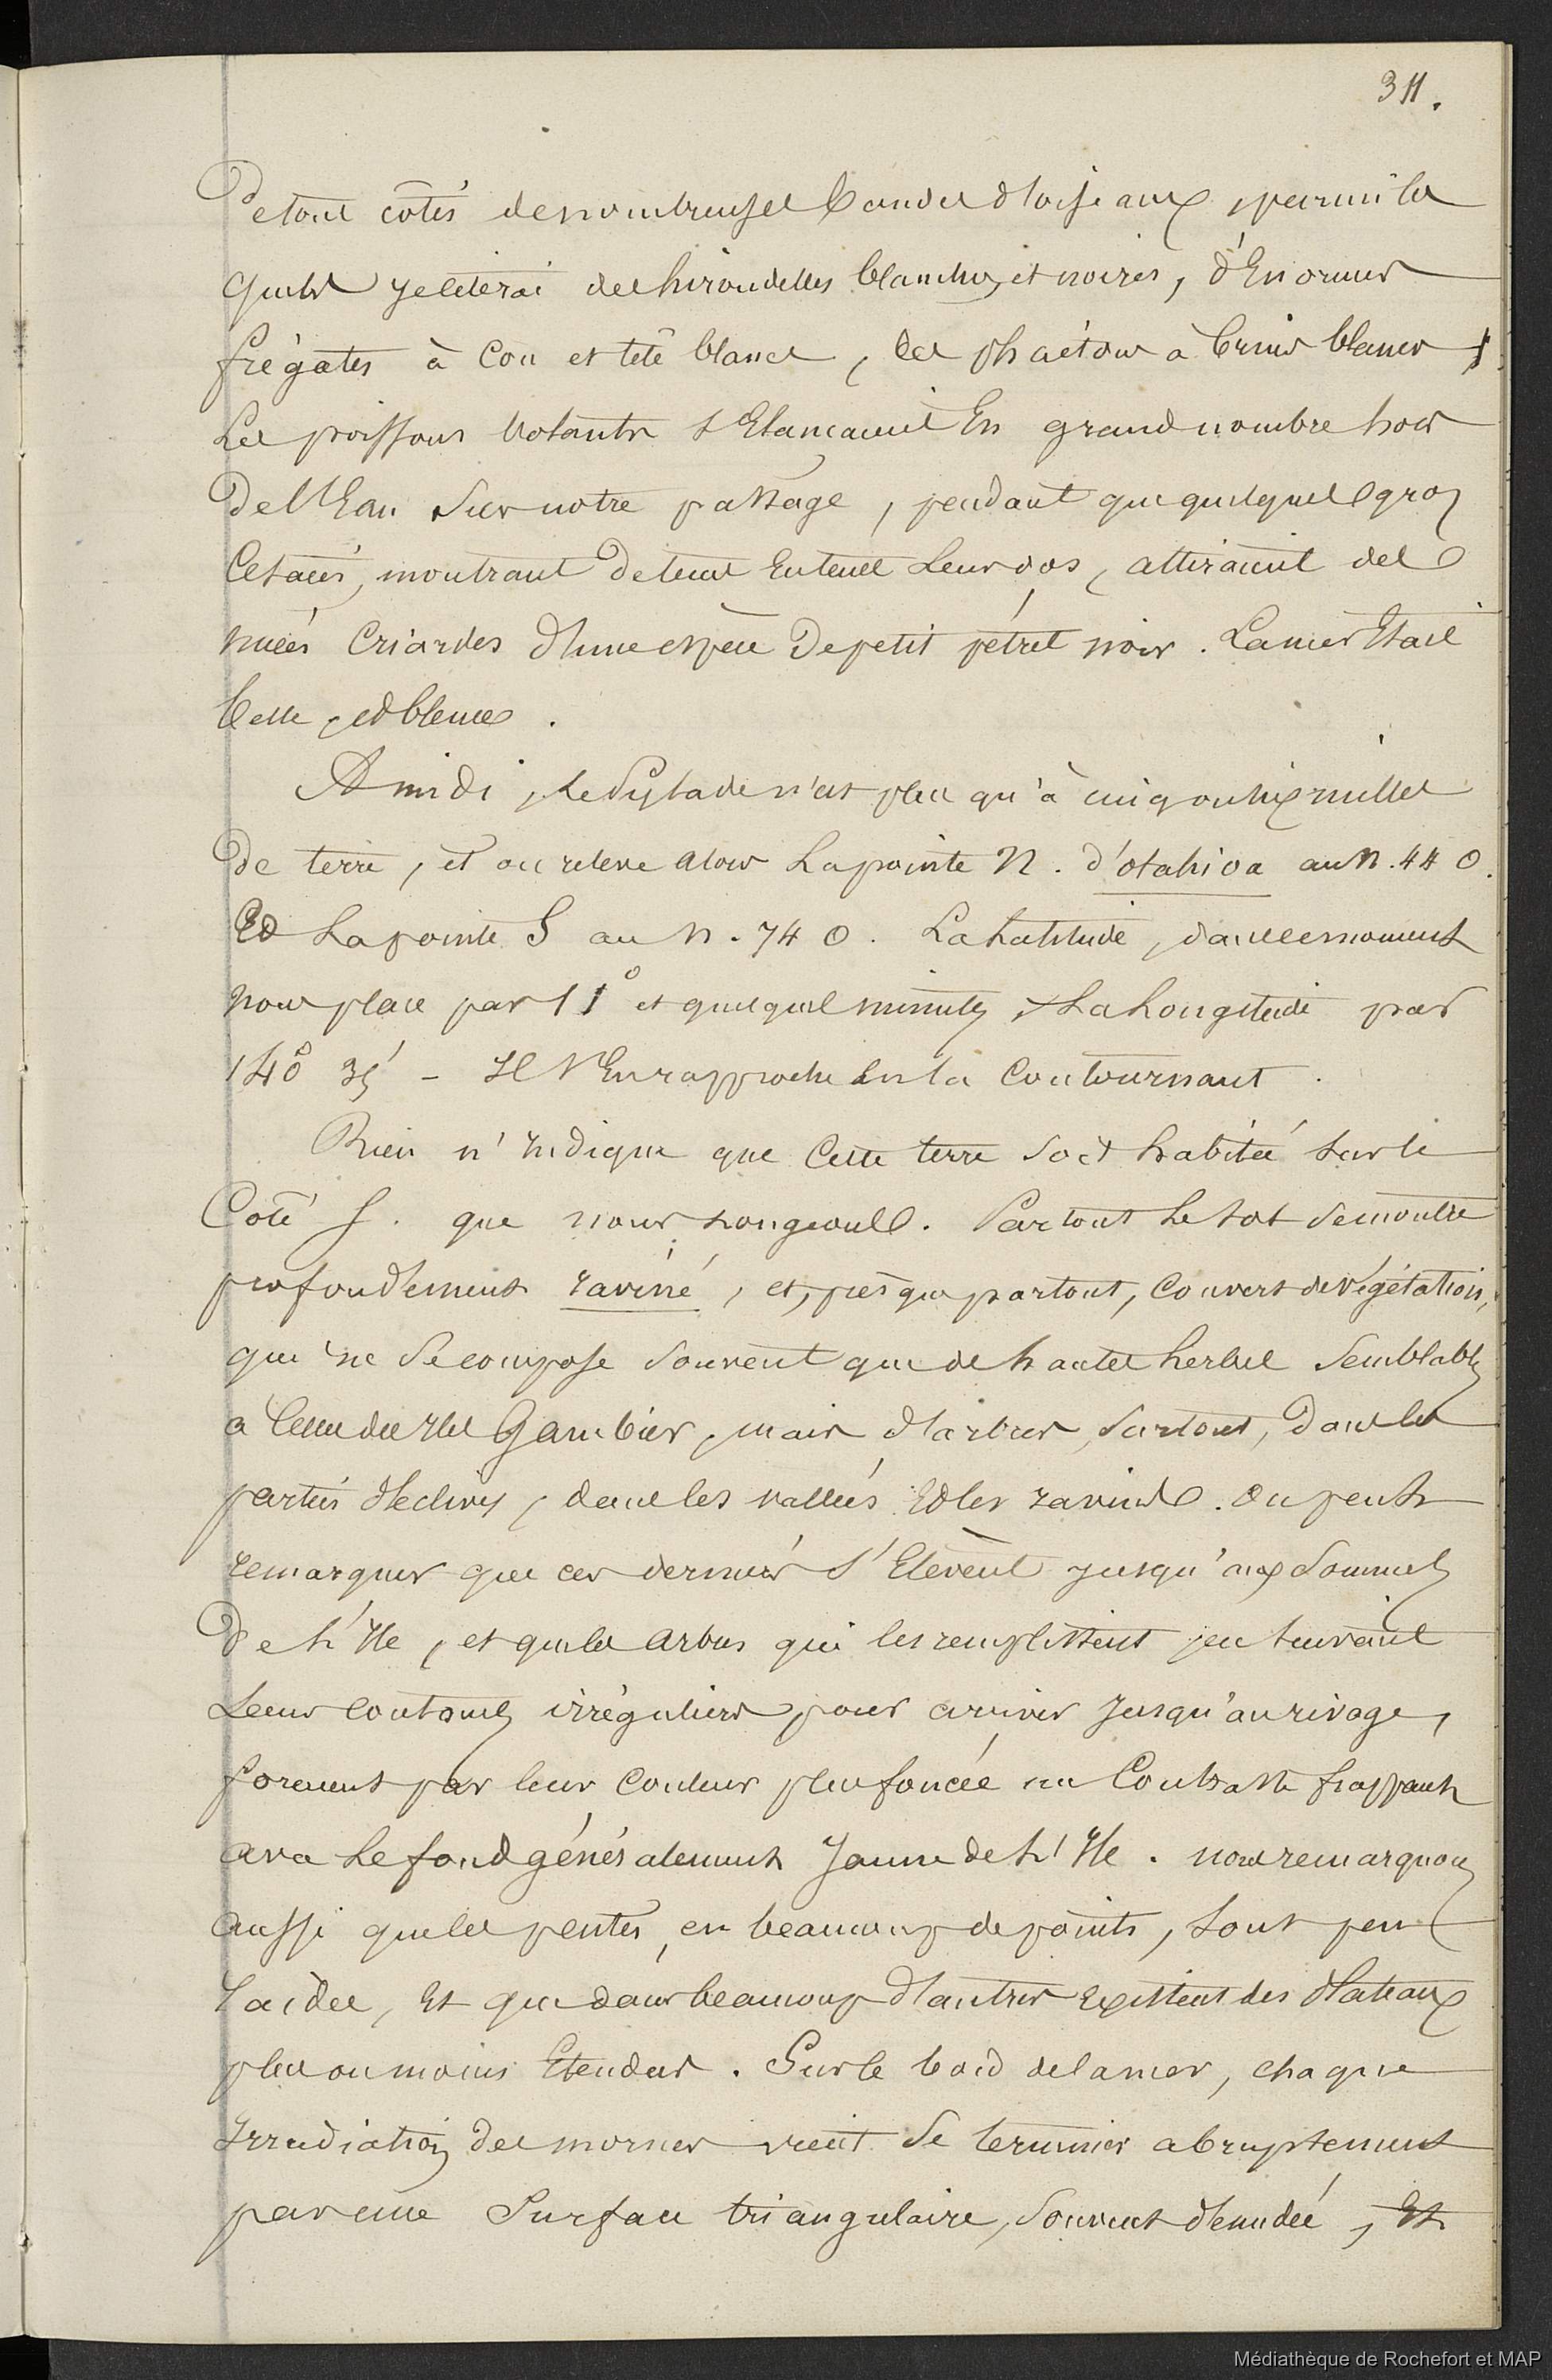 311.
De tous côtés de nombreuses bandes d'oiseaux, parmi les
quels je citerai des hirondelles blanches et noires, d'Enormes
frégates à Cou et tête blancs, des phaétons à brins blancs
Les poissons volants s'Elancaient En grand nombre hors
De l'Eau sur notre passage, pendant que quelques gros
Cétacés, montrant De tems En tems Leur dos, attiraient des
nuées Criardes d'une espèce De petit pétrel noir. La mer Etait
belle, et bleue.
A midi, le Pylade n'est plus qu'à cinq ou six milles
De terre, et on releve alors La pointe N. d'otahiva au N. 44 O.
Et La pointe S au N. 74 O. La Latitude, dans ce moment
nous place par 11° et quelques minutes, La Longitude par
140° 35' - Il s'En rapproche En la Contournant.
Rien n'Indique que Cette terre soit habitée sur le
Coté S. que nous Longeons. Partout Le sol se montre
profondement raviné, et, presque partout, Couvert de Végétation,
qui ne se compose souvent que de hautes herbes semblables
a Celles des Iles Gambier, mais d'arbres, surtout, Dans les
parties déclives, dans les vallées Et les ravins. On peut
remarquer que ces derniers s'Elevent jusqu'aux sommets
De L'Ile, et que les arbres qui les remplissent en suivant
Leurs contours irréguliers pour arriver jusqu'au rivage,
forment par leur Couleur plus foncée un Contraste frappant
avec Le fond généralement Jaune de L'Ile. nous remarquons
aussi que les pentes, en beaucoup de points, sont peu
raides, Et que dans beaucoup d'autres Existent des Plateaux
plus ou moins Etendus. Sur le bord de la mer, chaque
Irradiation des mornes vient se terminer abruptement
par une Surface triangulaire, Souvent dénudée, Et
Médiathèque de Rochefort et MAP